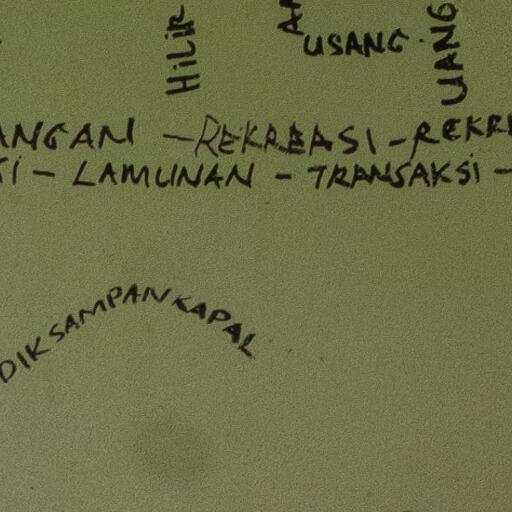 HILIR
USANG
UANG
ANGAN – REKREASI – REKRE
I – LAMUNAN – TRANSAKSI –
DIK SAMPAN KAPAL